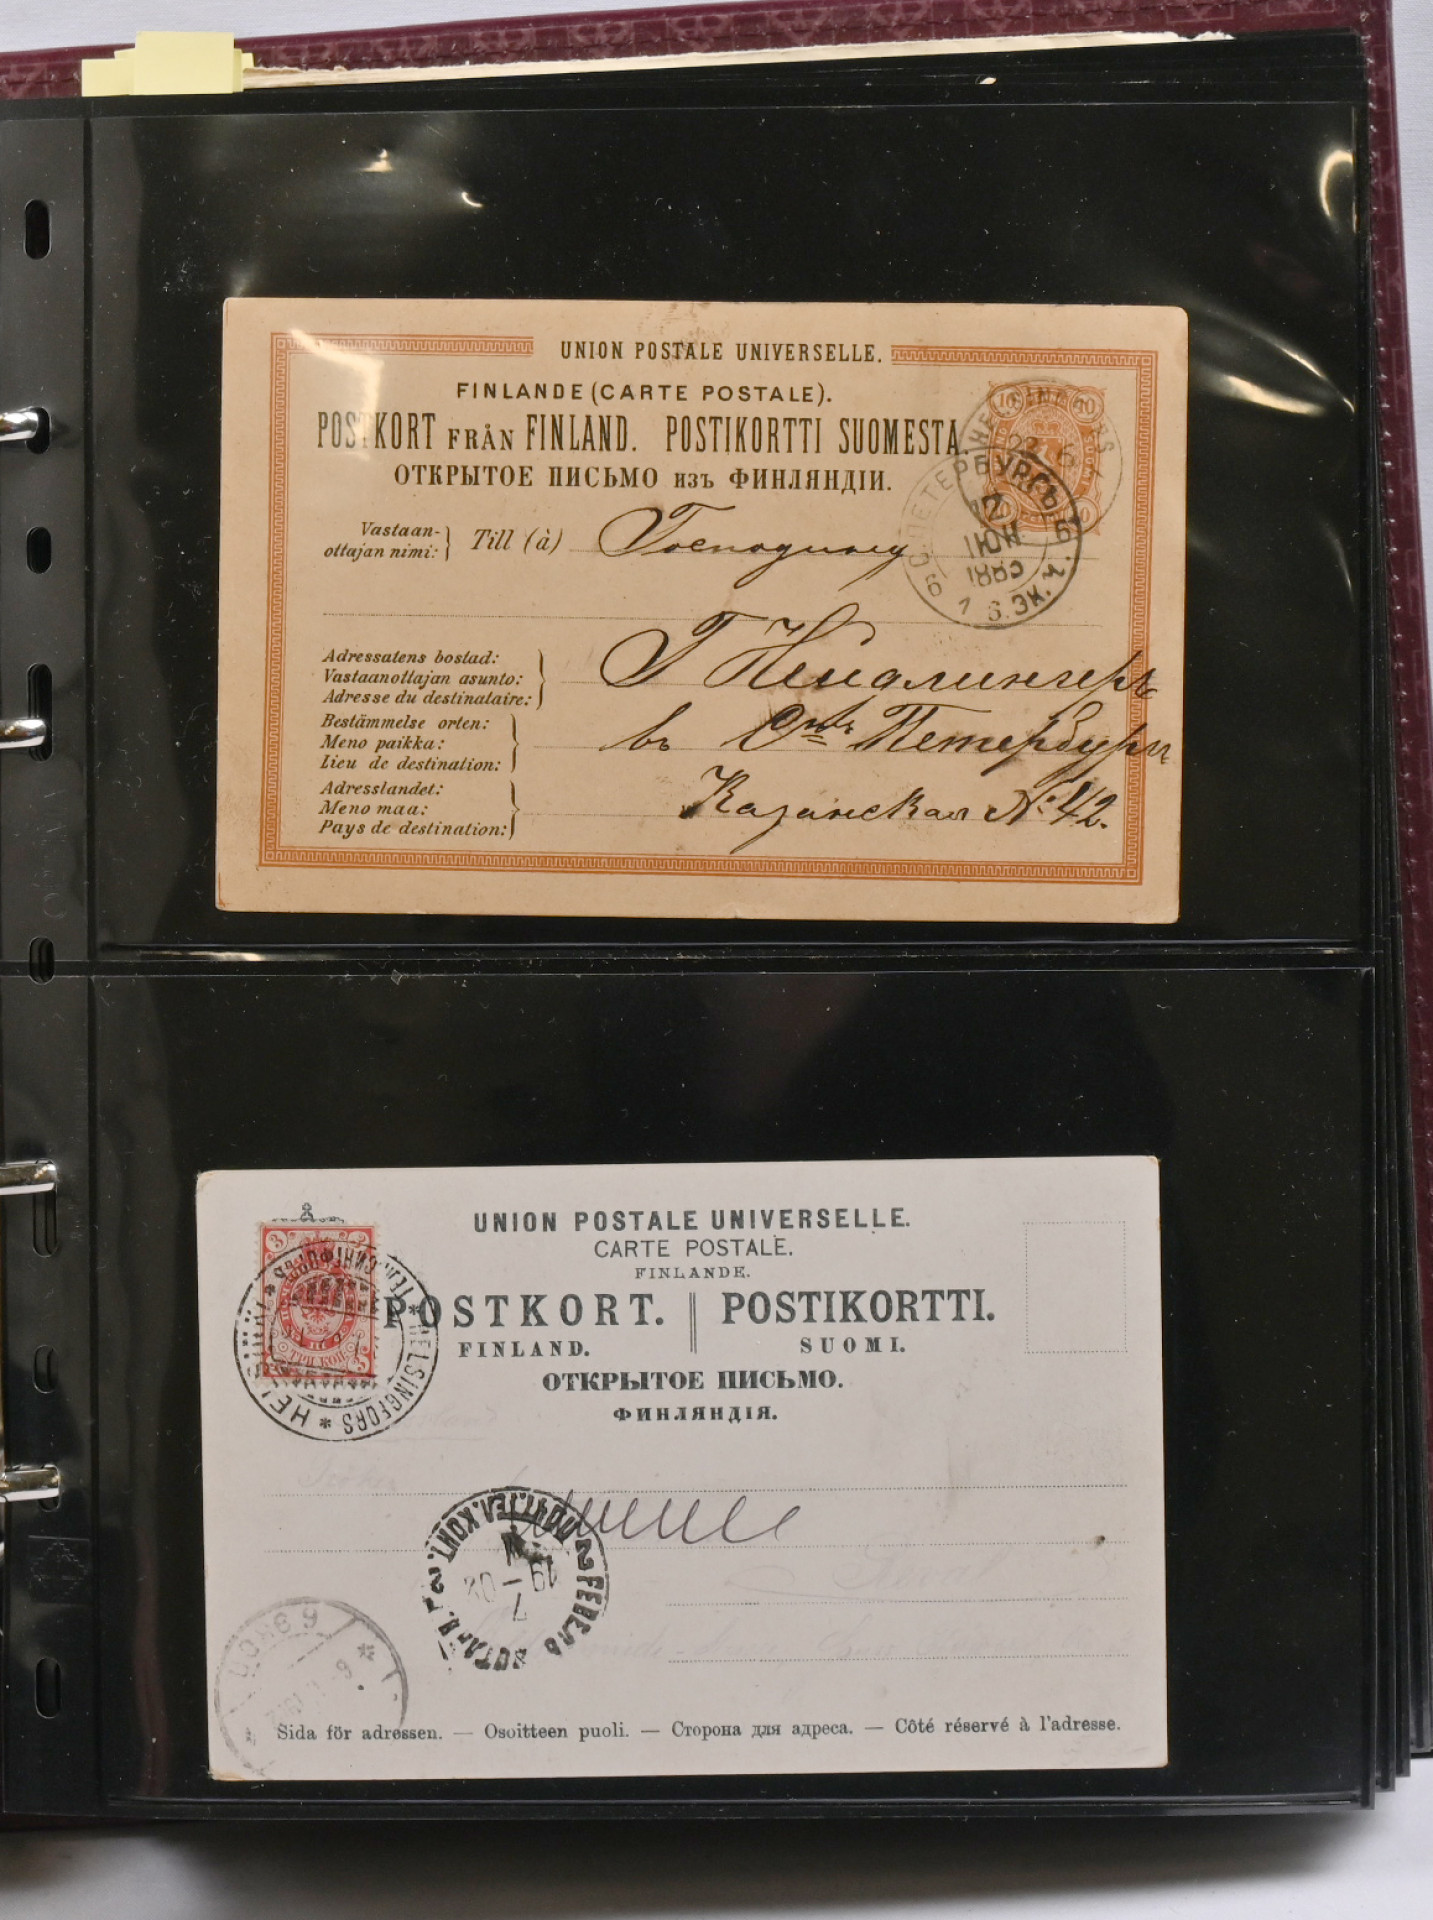 UNION POSTALE UNIVERSELLE.
FINLANDE (CARTE POSTALE).
POSTKORT FRÅN FINLAND. POSTIKORTTI SUOMESTA.
ОТКРЫТОЕ ПИСЬМО изъ ФИНЛЯНДІИ.
10 10
С.ПЕТЕРБУРГЪ
12
ІЮН
1885
6. ЭК. 1.
Vastaan-
ottajan nimi: Till (à) Господину
Adressatens bostad:
Vastaanottajan asunto:
Adresse du destinataire:
Bestämmelse orten:
Meno paikka: въ Петербургъ
Lieu de destination:
Adresslandet:
Meno maa: Казанская № 42.
Pays de destination:
UNION POSTALE UNIVERSELLE.
CARTE POSTALE.
FINLANDE.
POSTKORT. POSTIKORTTI.
FINLAND. SUOMI.
ОТКРЫТОЕ ПИСЬМО.
ФИНЛЯНДІЯ.
3
ТРИ КОП.
3
HELSINGFORS
РЕВЕЛЬ ПОЧТ.ТЕЛ.КОНТ.
7
Sida för adressen. — Osoitteen puoli. — Сторона для адреса. — Côté réservé à l'adresse.